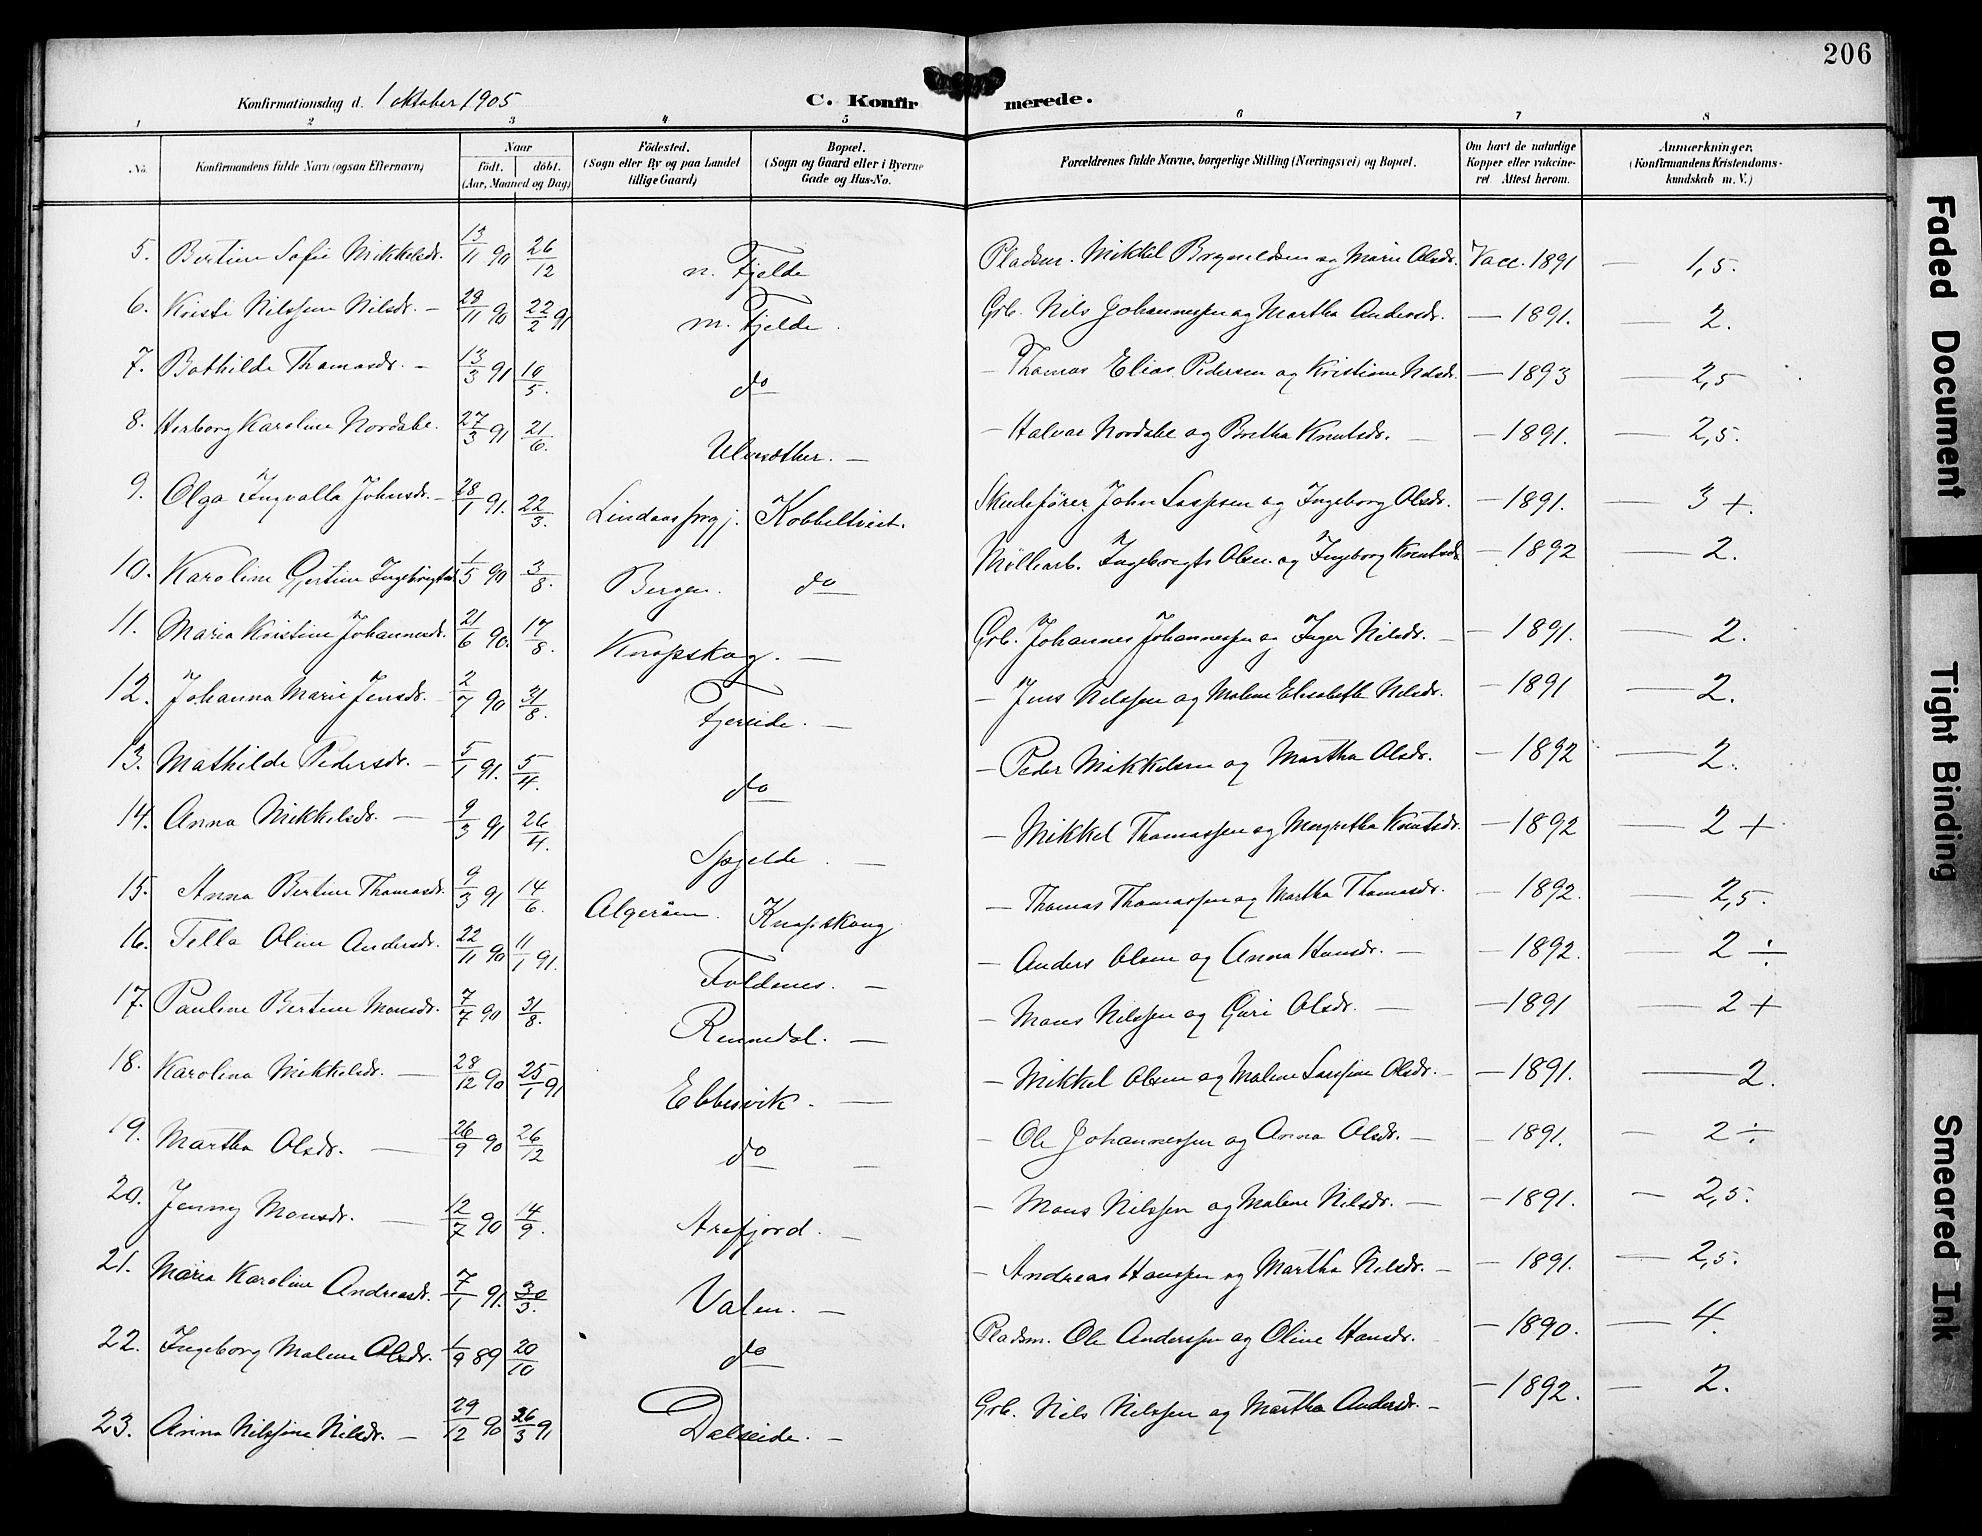 206
Konfirmationsdag d. 1 oktober 1905 C. Konfirmerede.
1 2 3 4 5 6 7 8
No. Konfirmandens fulde Navn (ogsaa Efternavn) Naar födt. döbt. (Aar, Maaned og Dag) Födested. (Sogn eller By og paa Landet tillige Gaard) Bopæl. (Sogn og Gaard eller i Byerne Gade og Hus-No. Forældrenes fulde Navne, borgerlige Stilling (Næringsvei) og Bopæl. Om havt de naturlige Kopper eller vaccineret. Attest herom. Anmærkninger. (Konfirmandens Kristendomskundskab m. V.)
5. Bertine Sofie Mikkelsdr. 13/11 90 26/12 n. Fjelde Pladsm. Mikkel Brynildsen og Marie Olsdr. Vacc. 1891 — 1,5.
6. Kristi Nilssine Nilsdr. — 28/11 90 22/2 91 m. Fjelde. Grb. Nils Johannessen og Martha Andersdr. — 1891. — 2.
7. Bothilde Thomasdr. — 13/3 91 10/5. do — Thomas Elias Pedersen og Kristiane Nilsdr. — 1893 — 2,5
8. Herborg Karoline Nordabe. 27/3 91 21/6. Ulvesæther. — — Halvar Nordabe og Bretha Knutsdr. — — 1891. — 2,5.
9. Olga Ingvalla Johnsdr. — 28/1 91. 22/3. Lindaas prgj. Kobbeltveit. Skudefører John Lassesen og Ingeborg Olsdr. — 1891. — 3 +.
10. Karoline Gjertine Ingebrigtsd. 1/5 90 3/8. Bergen. do Møllearb. Ingebrigts Olsen og Ingeborg Knutsdr. — 1892 — 2.
11. Maria Kristine Johannesdr. 21/6 90. 17/8. Knapskog. — Grb. Johannes Johannessen og Inger Nilsdr. — — 1891. — 2.
12. Johanna Marie Jensdr. — 2/7 90 31/8. Fjereide. — — Jens Nilssen og Malene Elisabeth Nilsdr. — 1891 — 2.
13. Mathilde Pedersdr. — 5/1 91. 5/4. do — Peder Mikkelsen og Martha Olsdr. — 1892 — 2.
14. Anna Mikkelsdr. — 9/3 91 26/4. Spjelde. — — Mikkel Thomassen og Margretha Knutsdr. — 1892 — 2 +
15. Anna Bertine Thomasdr. 9/3 91 14/6. Algerøen. Knapskaug — Thomas Thomassen og Martha Thomasdr. — 1892. — 2,5.
16. Tella Oline Andersdr. 22/11 90 11/1 91. Foldnes. — — Anders Olsen og Anna Hansdr. — — 1892. — 2 ÷
17. Pauline Bertine Monsdr. 7/7 90 31/8. Rennedal. — — Mons Nilssen og Guri Olsdr. — — 1891 — 2 +
18. Karolina Mikkelsdr. — 28/12 90 25/1 91 Ebbesvik. — — Mikkel Olsen og Malene Lassine Olsdr. — — 1891. — 2.
19. Martha Olsdr. — 26/9 90 26/12 do — — Ole Johannessen og Anna Olsdr. — — 1891. — 2 ÷
20. Jenny Monsdr. — 12/7 90 14/9. Arefjord. — — Mons Nilssen og Malene Nilsdr. — — 1891. — 2,5.
21. Maria Karoline Andreasdr. 7/1 91. 30/3. Valen. — — Andreas Hanssen og Martha Nilsdr. — — 1891. — 2,5.
22. Ingeborg Malene Olsdr. 1/9 89 20/10 do Pladsm. Ole Anderssen og Oline Hansdr. — 1890. — 4.
23. Anna Nilssine Nilsdr. — 29/12 90 26/3 91 Dalseide. — Grb. Nils Nilssen og Martha Andersdr. — — 1892. — 2.
Faded Document
Tight Binding
Smeared Ink